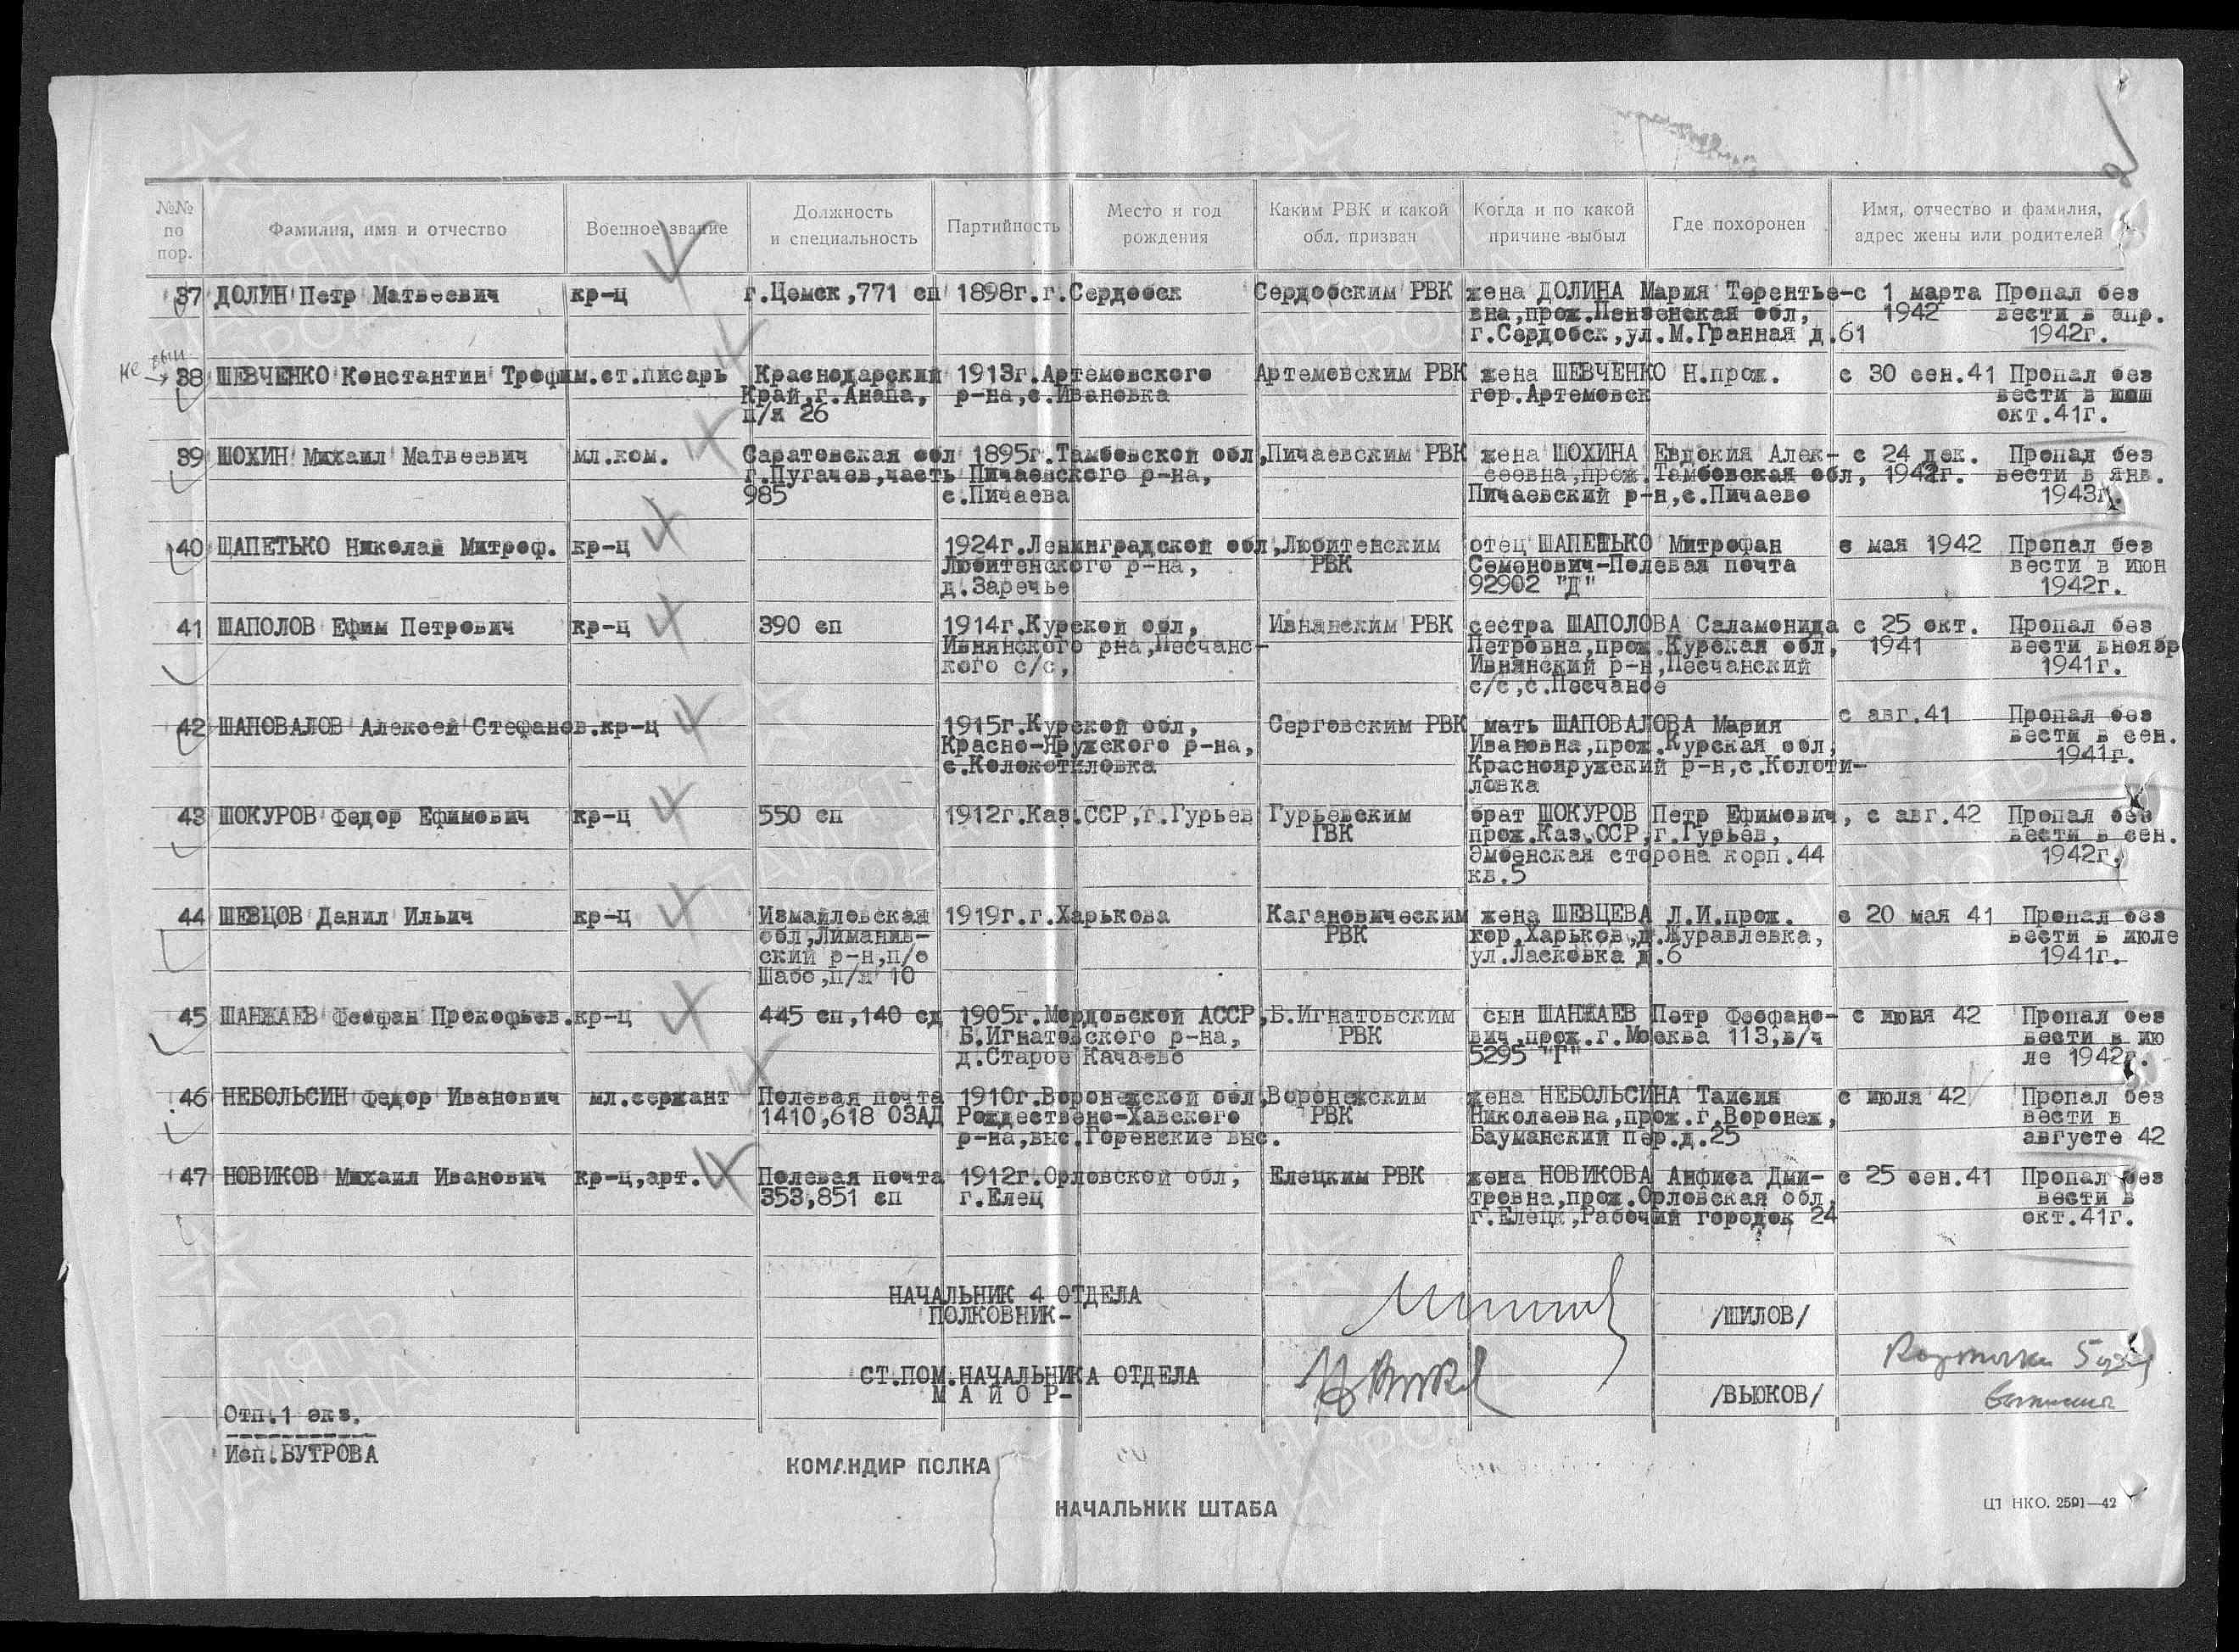 №№ по пор.
Фамилия, имя и отчество
Военное звание
Должность и специальность
Партийность
Место и год рождения
Каким РВК и какой обл. призван
Когда и по какой причине выбыл
Где похоронен
Имя, отчество и фамилия, адрес жены или родителей
37 ДОЛИН Петр Матвеевич кр-ц г.Цемск,771 сп 1898г.г.Сердобск Сердобским РВК жена ДОЛИНА Мария Терентье- с 1 марта Пропал без
вна,прож.Пензенская обл, 1942 вести в апр.
г.Сердобск,ул.М.Гранная д.61 1942г.
не вып
38 ШЕВЧЕНКО Константин Трофим.ст.писарь Краснодарский 1913г.Артемовского Артемовским РВК жена ШЕВЧЕНКО Н.прож. с 30 сен.41 Пропал без
Край,г.Анапа, р-на,с.Ивановка гор.Артемовск вести в
п/я 26 окт.41г.
39 ШОХИН Михаил Матвеевич мл.ком. Саратовская обл 1895г.Тамбовской обл,Пичаевским РВК жена ШОХИНА Евдокия Алек- с 24 дек. Пропад без
г.Пугачев,часть Пичаевского р-на, сеевна,прож.Тамбовская обл, 1942г. вести в янв.
985 с.Пичаева Пичаевский р-н,с.Пичаево 1943г.
40 ШАПЕТЬКО Николай Митроф. кр-ц 1924г.Ленинградской обл,Любитенским отец ШАПЕТЬКО Митрофан с мая 1942 Пропал без
Любитенского р-на, РВК Семенович-Полевая почта вести в июн
д.Заречье 92902 "Д" 1942г.
41 ШАПОЛОВ Ефим Петрович кр-ц 390 сп 1914г.Курской обл, Ивнянским РВК сестра ШАПОЛОВА Саламонида с 25 окт. Пропал без
Ивнянского рна,Песчанс- Петровна,прож.Курская обл, 1941 вести вноябр
кого с/с, Ивнянский р-н,Песчанский 1941г.
с/с,с.Песчаное
42 ШАПОВАЛОВ Алексей Стефанов.кр-ц 1915г.Курской обл, Серговским РВК мать ШАПОВАЛОВА Мария с авг.41 Пропал без
Красно-Яружского р-на, Ивановна,прож.Курская обл, вести в сен.
с.Колокотиловка Краснояружский р-н,с.Колоти- 1941г.
ловка
43 ШОКУРОВ Федор Ефимович кр-ц 550 сп 1912г.Каз.ССР,г.Гурьев Гурьевским брат ШОКУРОВ Петр Ефимович, с авг.42 Пропал без
ГВК прож.Каз.ССР,г.Гурьев, вести в сен.
Эмбенская сторона корп.44 1942г.
кв.5
44 ШЕВЦОВ Данил Ильич кр-ц Измайловская 1919г.г.Харькова Кагановическим жена ШЕВЦЕВА Л.И.прож. с 20 мая 41 Пропал без
обл,Лиманив- РВК гор.Харьков,д.Журавлевка, вести в июле
ский р-н,п/о ул.Ласковка д.6 1941г.
Шабо,п/я 10
45 ШАНЖАЕВ Феофан Прокофьев.кр-ц 445 сп,140 сд 1905г.Мордовской АССР,Б.Игнатовским сын ШАНЖАЕВ Петр Феофано- с июня 42 Пропал без
Б.Игнатовского р-на, РВК вич,прож.г.Москва 113,в/ч вести в ию
д.Старое Качаево 5295 "Г" ле 1942г.
46 НЕБОЛЬСИН Федор Иванович мл.сержант Полевая почта 1910г.Воронежской обл,Воронежским жена НЕБОЛЬСИНА Таисия с июля 42 Пропал без
1410,618 ОЗАД Рождествено-Хавского РВК Николаевна,прож.г.Воронеж, вести в
р-на,выс.Горенские выс. Бауманский пер.д.25 августе 42
47 НОВИКОВ Михаил Иванович кр-ц,арт. Полевая почта 1912г.Орловской обл, Елецким РВК жена НОВИКОВА Анфиса Дми- с 25 сен.41 Пропал без
353,851 сп г.Елец тровна,прож.Орловская обл, вести в
г.Елецк,Рабочий городок 24 окт.41г.
НАЧАЛЬНИК 4 ОТДЕЛА
ПОЛКОВНИК- /ШИЛОВ/
СТ.ПОМ.НАЧАЛЬНИКА ОТДЕЛА
М А Й О Р- /ВЬЮКОВ/
Отп.1 экз.
Исп.БУТРОВА
КОМАНДИР ПОЛКА
НАЧАЛЬНИК ШТАБА
ЦТ НКО. 2591—42
ПАМЯТЬ НАРОДА